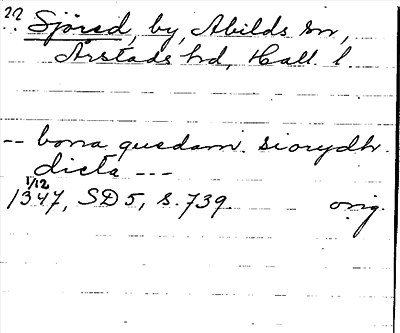 22. Sjöred, by, Abilds sn,
Årstads hd, Hall. l.
-- bona quedam. siorydh.
dicta ---
1/12
1347, SD 5, s. 739. orig.